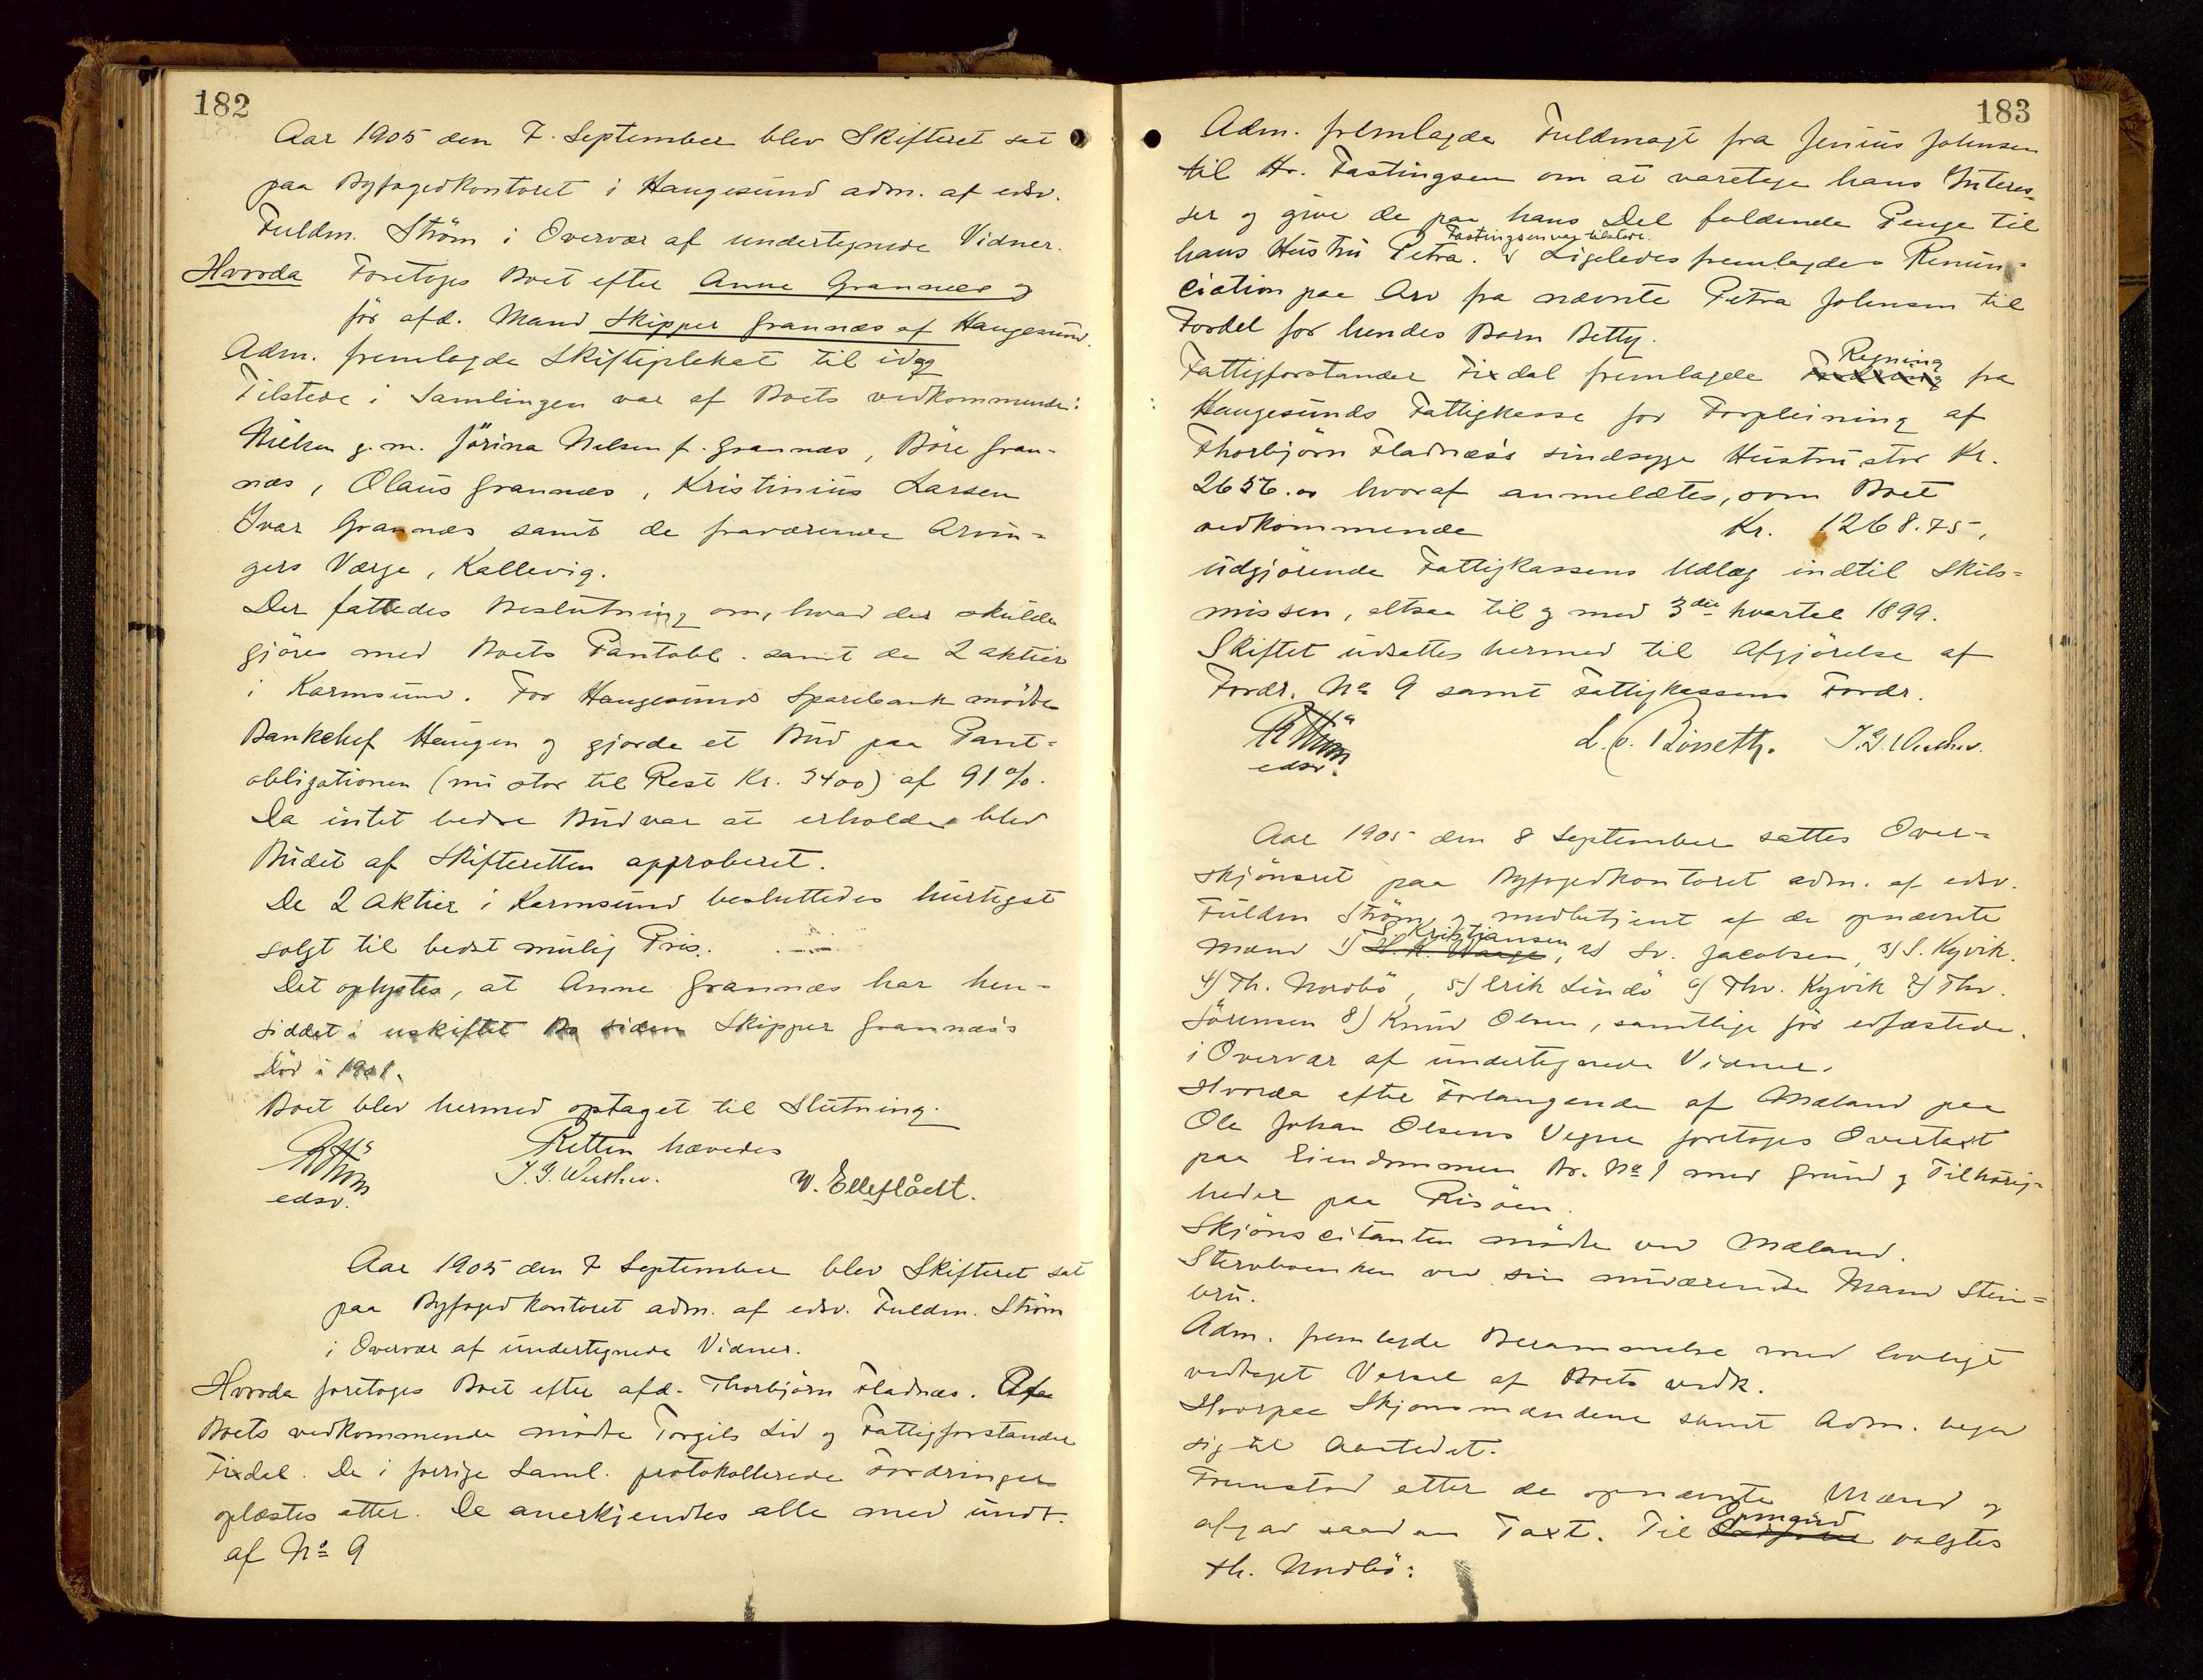 182
Aar 1905 den 7. September blev Skifteret sat
paa Byfogedkontoret i Haugesund adm. af edsv.
Fuldm. Ström i Overvær af undertegnede Vidner.
Hvorda Foretoges Boet efter Anne Grannæs og
før afd. Mand Skipper Grannæs af Haugesund.
Adm. fremlagde Skifteplakat til idag
Tilstede i Samlingen var af Boets vedkommende:
Nielsen g. m. Jörina Nelsen f. Grannæs, Böre Gran-
næs, Olaus Grannæs, Kristinius Larsen
Ivar Grannæs samt de fraværende Arvin=
gers Værge, Kallevig.
Der fattedes Beslutning om, hvad der skulde
gjöres med Boets Pantobl. samt de 2 aktier
i Karmsund. For Haugesunds Sparebank mødte
Bankchef Haugen og gjorde et Bud paa Pant-
obligationen (nu stor til Rest Kr. 3400) af 91%.
Da intet bedre Bud var at erholde blev
Budet af Skifteretten approberet.
De 2 Aktier i Karmsund besluttedes hurtigst
solgt til bedst mulig Pris.
Det oplystes, at Anne Grannæs har hen-
siddet i uskiftet Bo siden Skipper Grannæs's
Död i 1901.
Boet blev hermed optaget til Slutning.
Retten hævedes
edsv.
V. Elleflådt.
Aar 1905 den 7 September blev Skifteret sat
paa Byfogedkontoret adm. af edsv. Fuldm. Ström
i Overvær af undertegnede Vidner.
Hvorda foretoges Boet efter afd. Thorbjörn Fladnæs. Afa
Boets vedkommende mødte Torgils Lid og Fattigforstander
Fixdal. De i forrige Saml. protokollerede Fordringer
oplæstes etter. De anerkjendtes alle med undt.
af No 9
183
Adm. fremlagde Fuldmagt fra Junius Johnsen
til Hr. Fastingsen om at varetage hans Interes=
ser og give de paa hans Del faldende Penge til
Fastingsen var tilstede.
hans Hustru Petra. Ligeledes fremlagdes Renun=
ciation paa Arv fra nævnte Petra Johnsen til
Fordel for hendes Barn Betty.
Regning
Fattigforstander Fixdal fremlagde fra
Haugesunds Fattigkasse for Forpleining af
Thorbjörn Fladnæs's sindsyge Hustru stor Kr.
2656.00 hvoraf anmeldtes, som Boet
vedkommende Kr. 1268.75,
udgjörende Fattigkassens Udlæg indtil Skils=
missen, altsaa til og med 3die kvartal 1899.
Skiftet udsattes hermed til Afgjörelse af
Fordr. No 9 samt Fattigkassens Fordr.
edsv.
Aar 1905 den 8 September sattes Over=
skjönsret paa Byfogedkontoret adm. af edsv.
Fuldm Ström og medbetjent af de opnævnte
Kristiansen
Mænd 1) H. R. Waage, 2) Sv. Jacobsen, 3) S. Kyvik.
4) Th. Nordbö, 5) Erik Lindö 6) Thv. Kyvik 7) Thv.
Sörensen 8) Knud Olsen, samtlige før edfæstede.
i Overvær af undertegnede Vidner.
Hvorda efter Forlangende af Mæland paa
Ole Johan Olsens Vegne foretoges Overtaxt
paa Eiendommen Br. No 1 med Grund og Tilhörig=
heder paa Risöen.
Skjönscitanten mødte ved Mæland.
Stervboenken ved sin nuværende Mand Stein=
bru.
Adm. fremlagde Berammelse med lovligt
vedtaget Varsel af Boets vedk.
Hvorpaa Skjönsmændene samt Adm. begav
sig til Aastedet.
Fremstod etter de opnævnte Mænd og
Opmand
afgav saadan Taxt. Til valgtes
Th. Nordbö: